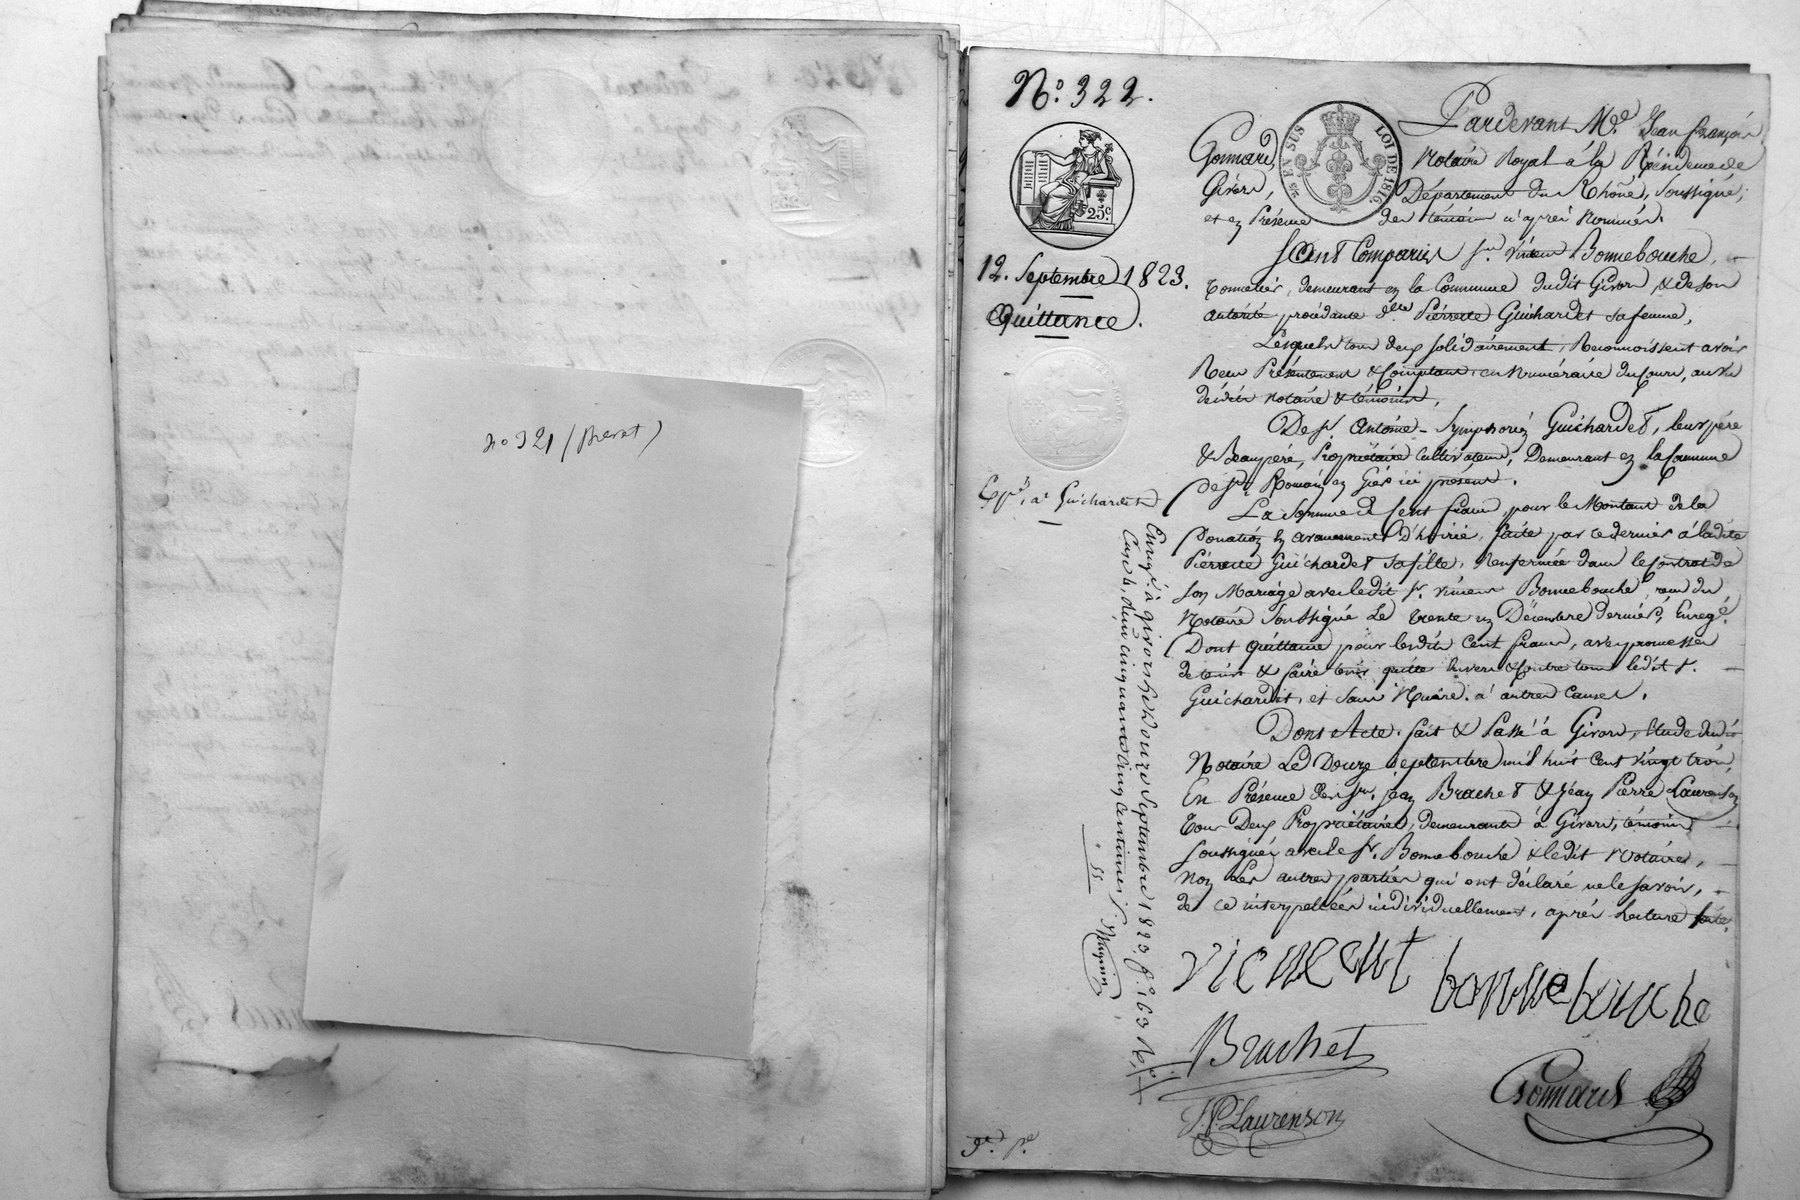 n° 321 (Brevet)
N.° 322.
25 EN SUS
LOI DE 1816
25c.
12. Septembre 1823.
Quittance.
Expé. at Guichardet
Enregé. à Givors le douze Septembre 1823, f.° 163 R.°
Case 4, deux cinquante cinq centimes
" 55
Pardevant M.e Jean françois
Gonnard, Notaire Royal à la Résidence de
Givors, Département du Rhône, Soussigné,
et en Présence des témoins ci après Nommés.
Sont Comparus sr. Vincent Bonnebouche,
tonnelier, demeurant en la Commune dudit Givors, & de son
autorité procédante delle Pierrette Guichardet sa femme,
Lesquels tous deux solidairement, Reconnoissent avoir
Reçu Présentement & Comptant, en Numéraire du Cours, au vu
desdits Notaire & témoins,
De sr. Antoine-Symphorien Guichardet, leur père
& Beaupère, Propriétaire cultivateur, Demeurant en la Commune
de st. Romain en Giers ici présent.
La Somme de Cent francs, pour le Montant de la
Donation en avancement D'hoirie, faite par ce dernier à ladite
Pierrette Guichardet sa fille, Renfermée dans le Contrat de
son Mariage avec ledit sr. Vincent Bonnebouche, reçu du
Notaire Soussigné Le trente un Décembre dernier, Enregé.
Dont Quittance pour lesdits Cent francs, avec promesse
de tenir & faire tenir quitte Envers & Contre tous ledit sr.
Guichardet, et sans Nuire à autres Causes.
Dont Acte, fait & Passé à Givors, Etude dudit
Notaire Le Douze Septembre mil huit Cent vingt trois,
En Présence des srs. jean Brachet & jean Pierre Laurenson
tous Deux Propriétaires, demeurants à Givors, témoins
soussignés avec le sr. Bonnebouche & ledit Notaire,
Non Les autres parties qui ont déclaré ne le savoir,
de ce interpellées individuellement, après Lecture faite.
vicncent bonnebouche
Brachet
Gonnard
J. P. Laurenson